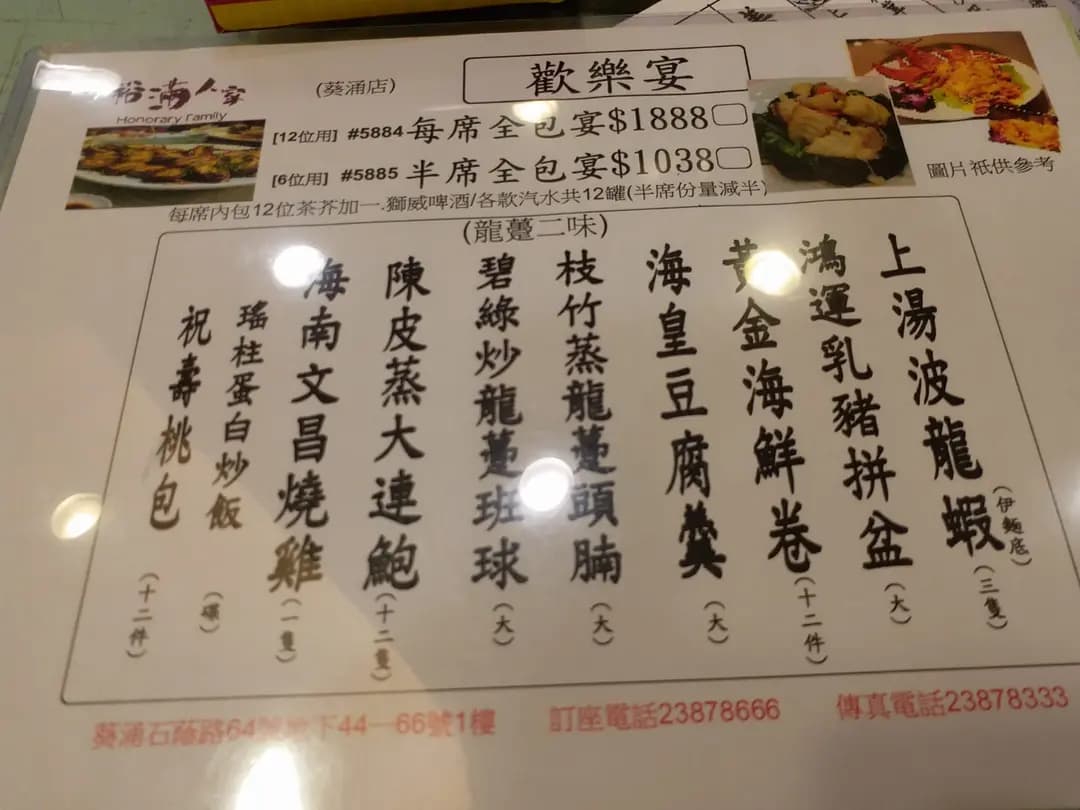 裕滿人家
Honorary Family
(葵涌店)
歡樂宴
[12位用] #5884 每席全包宴$1888
[6位用] #5885 半席全包宴$1038
圖片祇供參考
每席內包12位茶芥加一.獅威啤酒/各款汽水共12罐(半席份量減半)
(龍躉二味)
上湯波龍蝦(伊麵底)(三隻)
鴻運乳豬拼盆(大)
黃金海鮮卷(十二件)
海皇豆腐羹(大)
枝竹蒸龍躉頭腩(大)
碧綠炒龍躉班球(大)
陳皮蒸大連鮑(十二隻)
海南文昌燒雞(一隻)
瑤柱蛋白炒飯(碟)
祝壽桃包(十二件)
葵涌石蔭路64號地下44—66號1樓
訂座電話23878666
傳真電話23878333